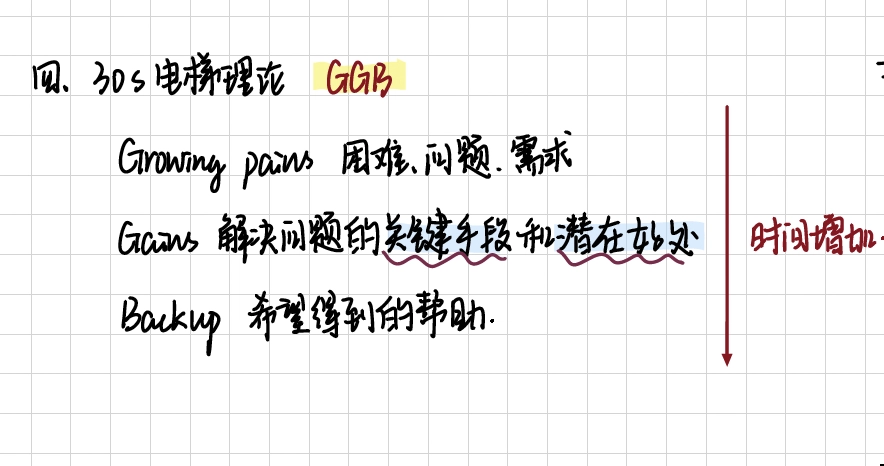 四、30s电梯理论 GGB
Growing pains 困难、问题、需求
Gains 解决问题的关键手段和潜在好处
时间增加
Backup 希望得到的帮助.